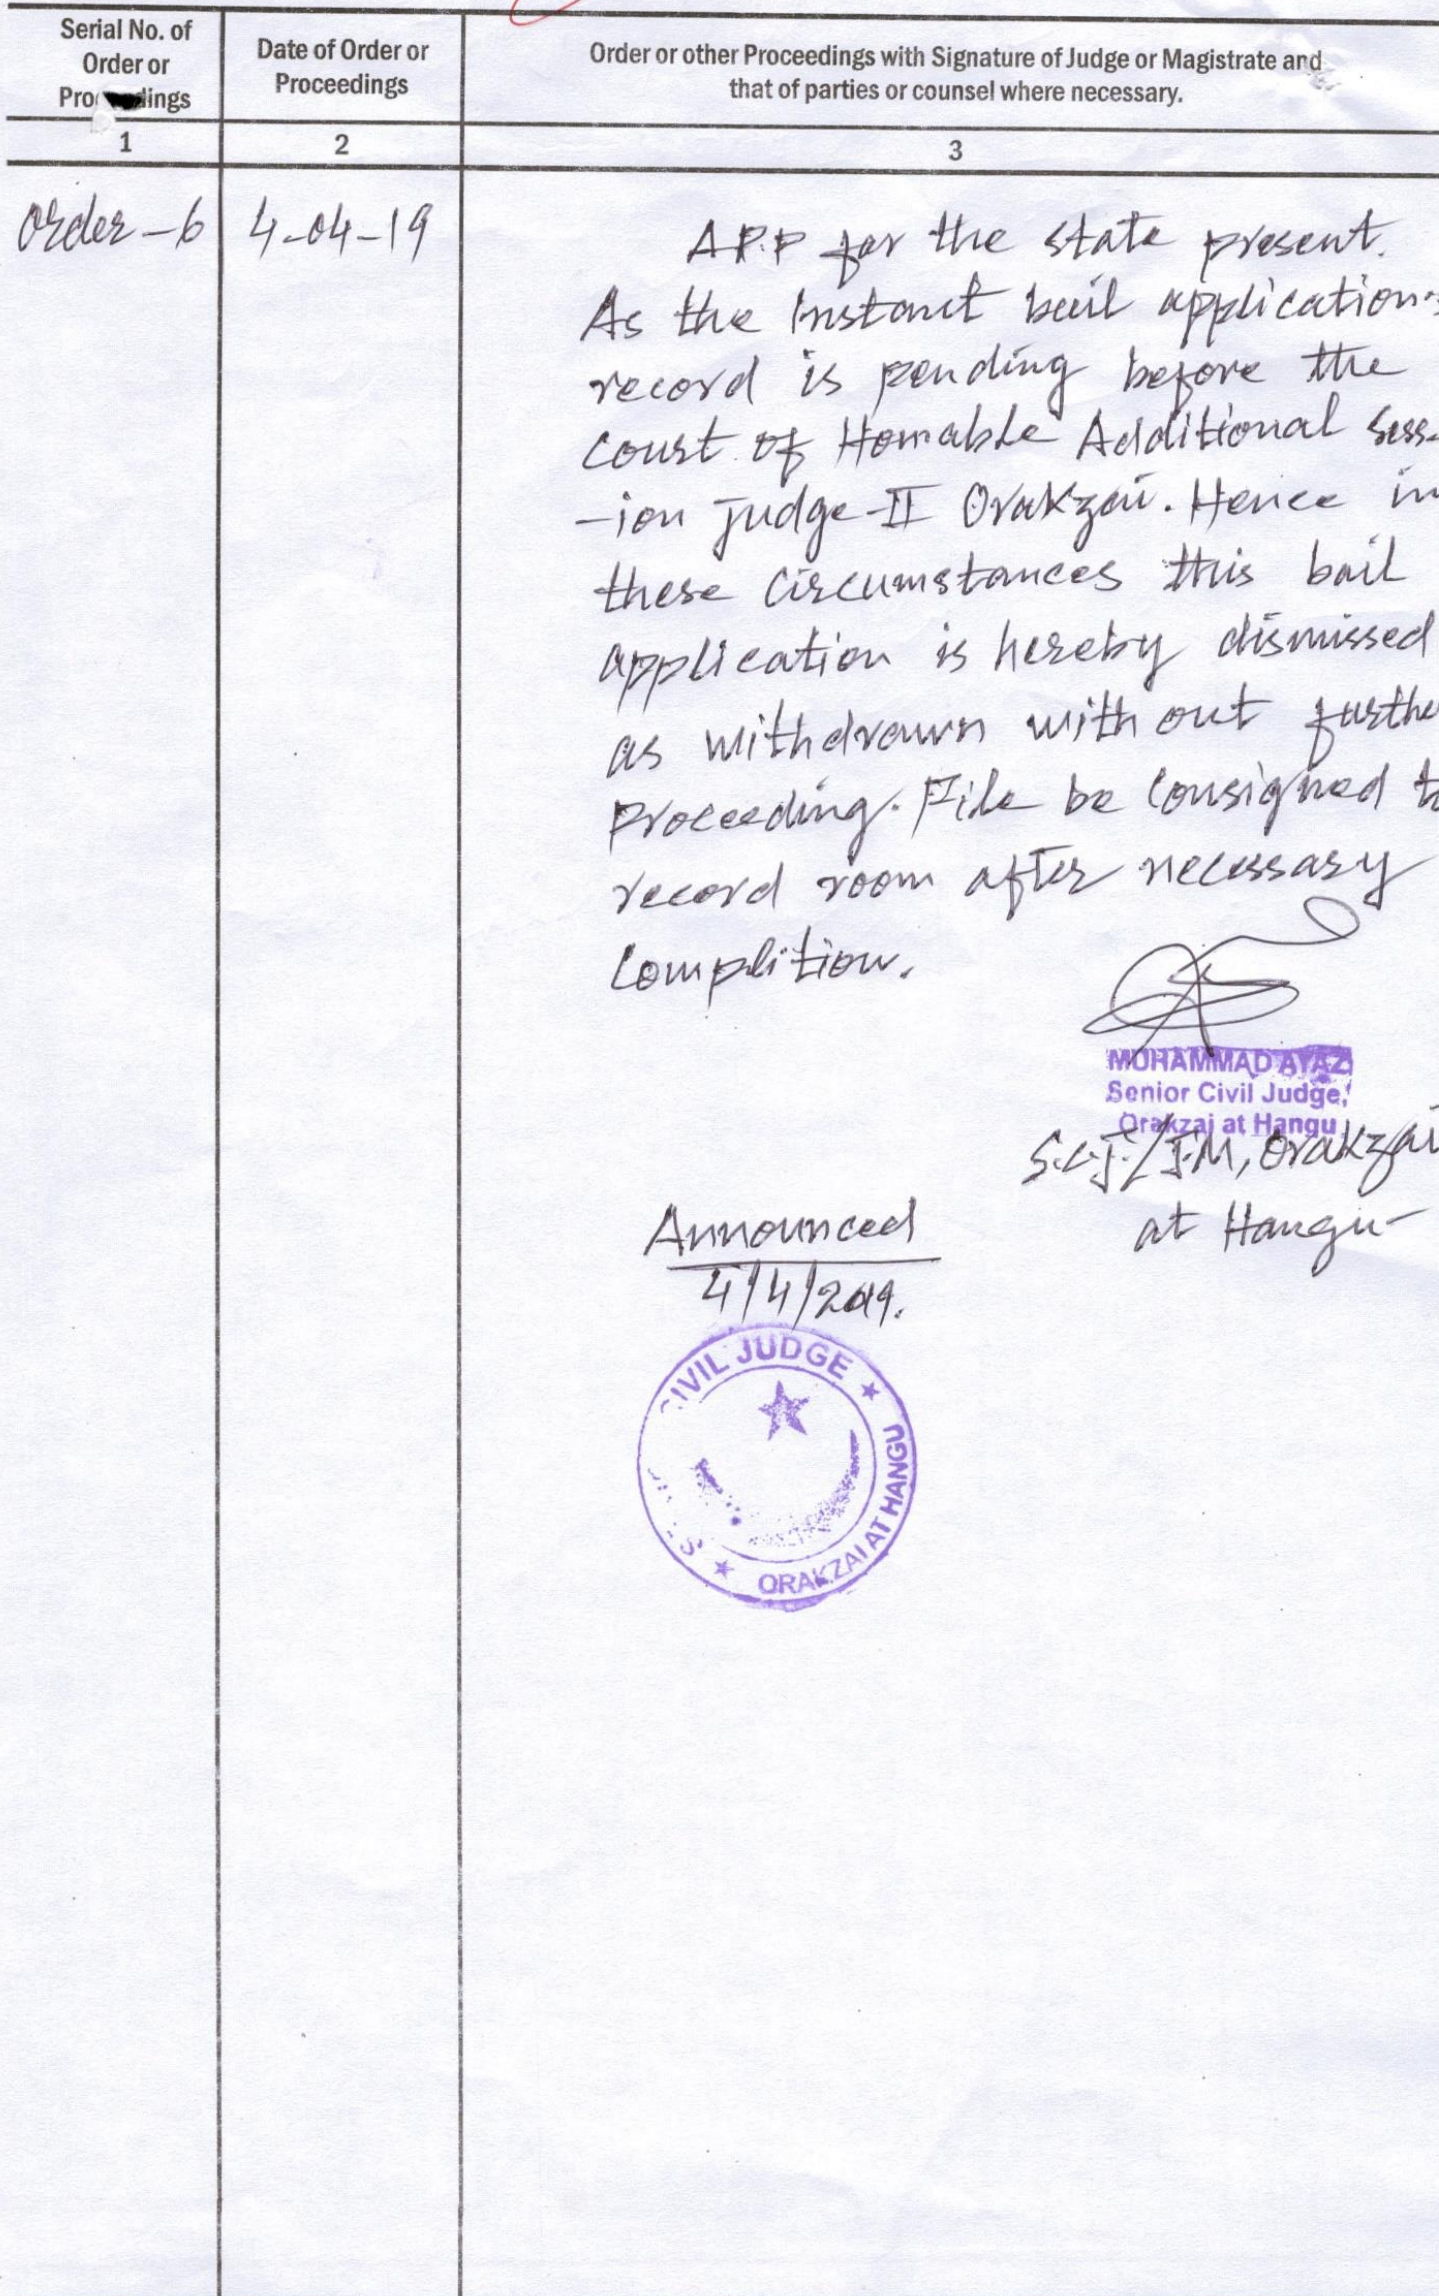 Serial No. of
Order or
Proceedings
Date of Order or
Proceedings
Order or other Proceedings with Signature of Judge or Magistrate and
that of parties or counsel where necessary.
1
2
3
Order-6
4-04-19
A.P.P for the state present.
As the instant bail application's
record is pending before the
court of Honrable Additional Sess-
-ion judge-II Orakzai. Hence in
these circumstances this bail
application is hereby dismissed
as withdrawn with out further
proceeding. File be consigned to
record room after necessary
complition.
MUHAMMAD AYAZ
Senior Civil Judge,
Orakzai at Hangu
S.C.J./J.M, Orakzai
at Hangu
Announced
4/4/2019.
CIVIL JUDGE
ORAKZAI AT HANGU